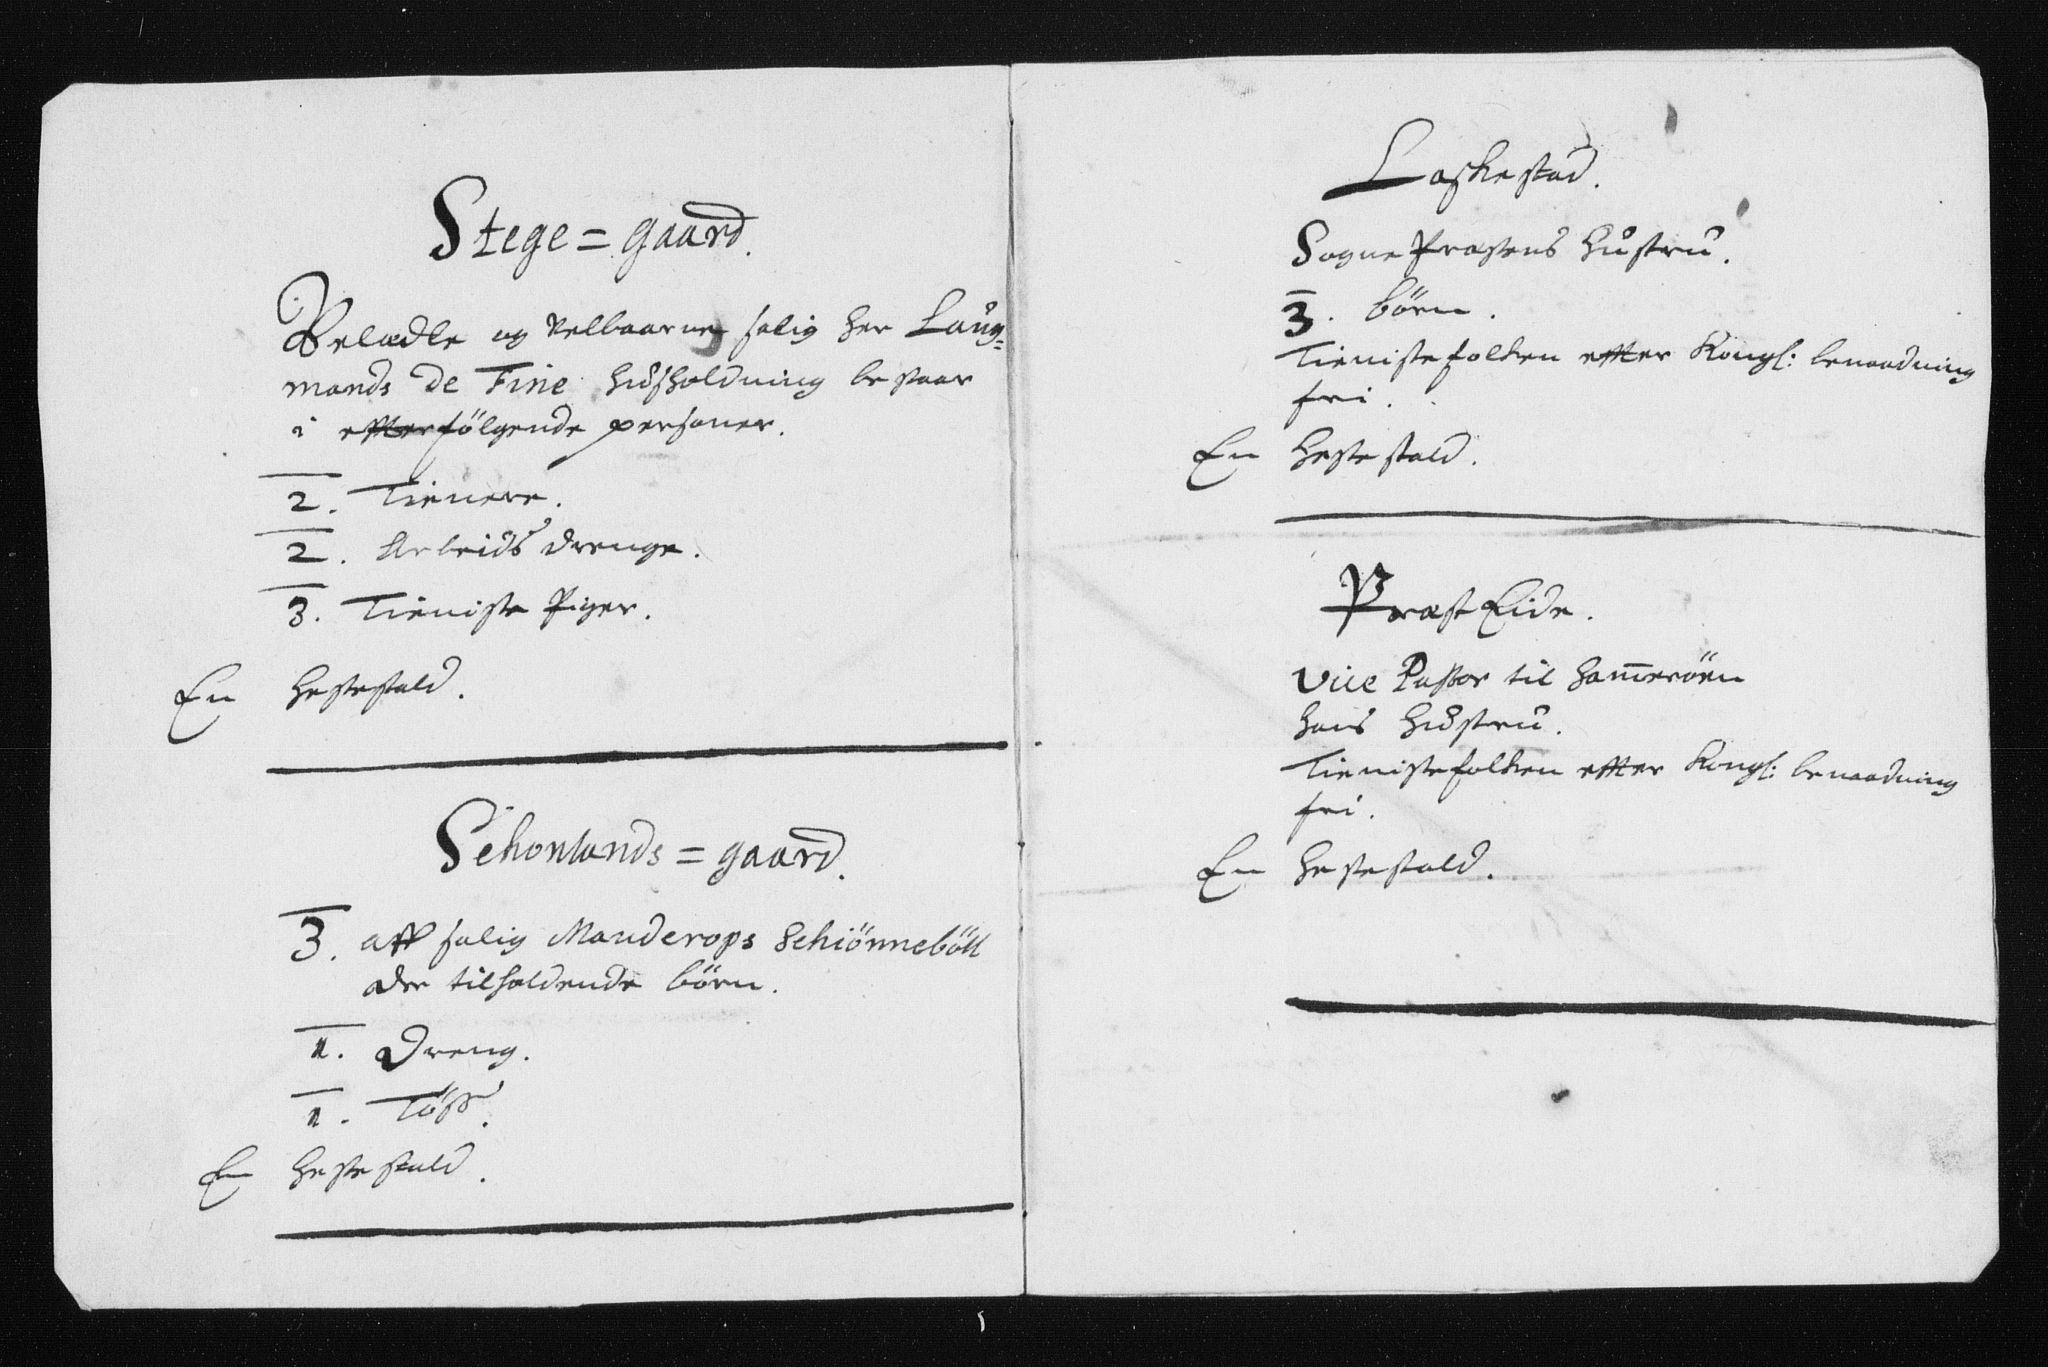 Stege = gaard.
Velædle og velbaarne salig her Laug=
mands de Fine huusholdning bestaar
i effterfölgende personer.
2. Tienere.
2. Arbeids drenge.
3. Tieniste Piger.
En hestestald.
Schonlands = gaard.
3. aff salig Manderops Schiönneböll
der tilholdende börn.
1. Dreng.
1. Töss.
En hestestald.
Laskestad.
Sogne Præstens hustru.
3. börn.
Tienistefolken effter Kongl: benaadning
fri.
En hestestald.
Præst Eide.
Vice Pastor til Ham̄eröen
hans hustru.
Tienistefolken effter Kongl: benaadning
fri.
En hestestald.